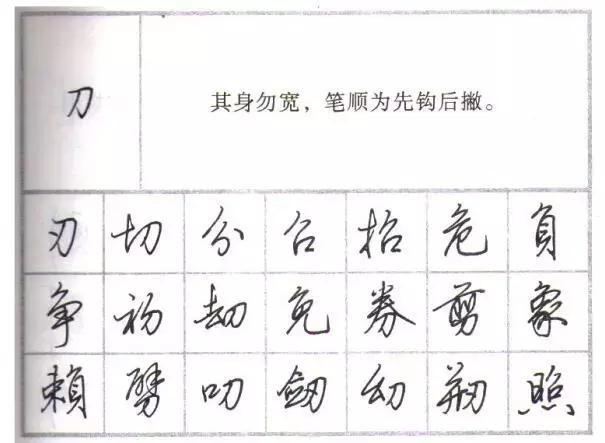 刀
其身勿宽，笔顺为先钩后撇。
刃 切 分 召 招 危 負
争 初 劫 免 券 剪 象
賴 劈 叨 劒 幻 剏 照